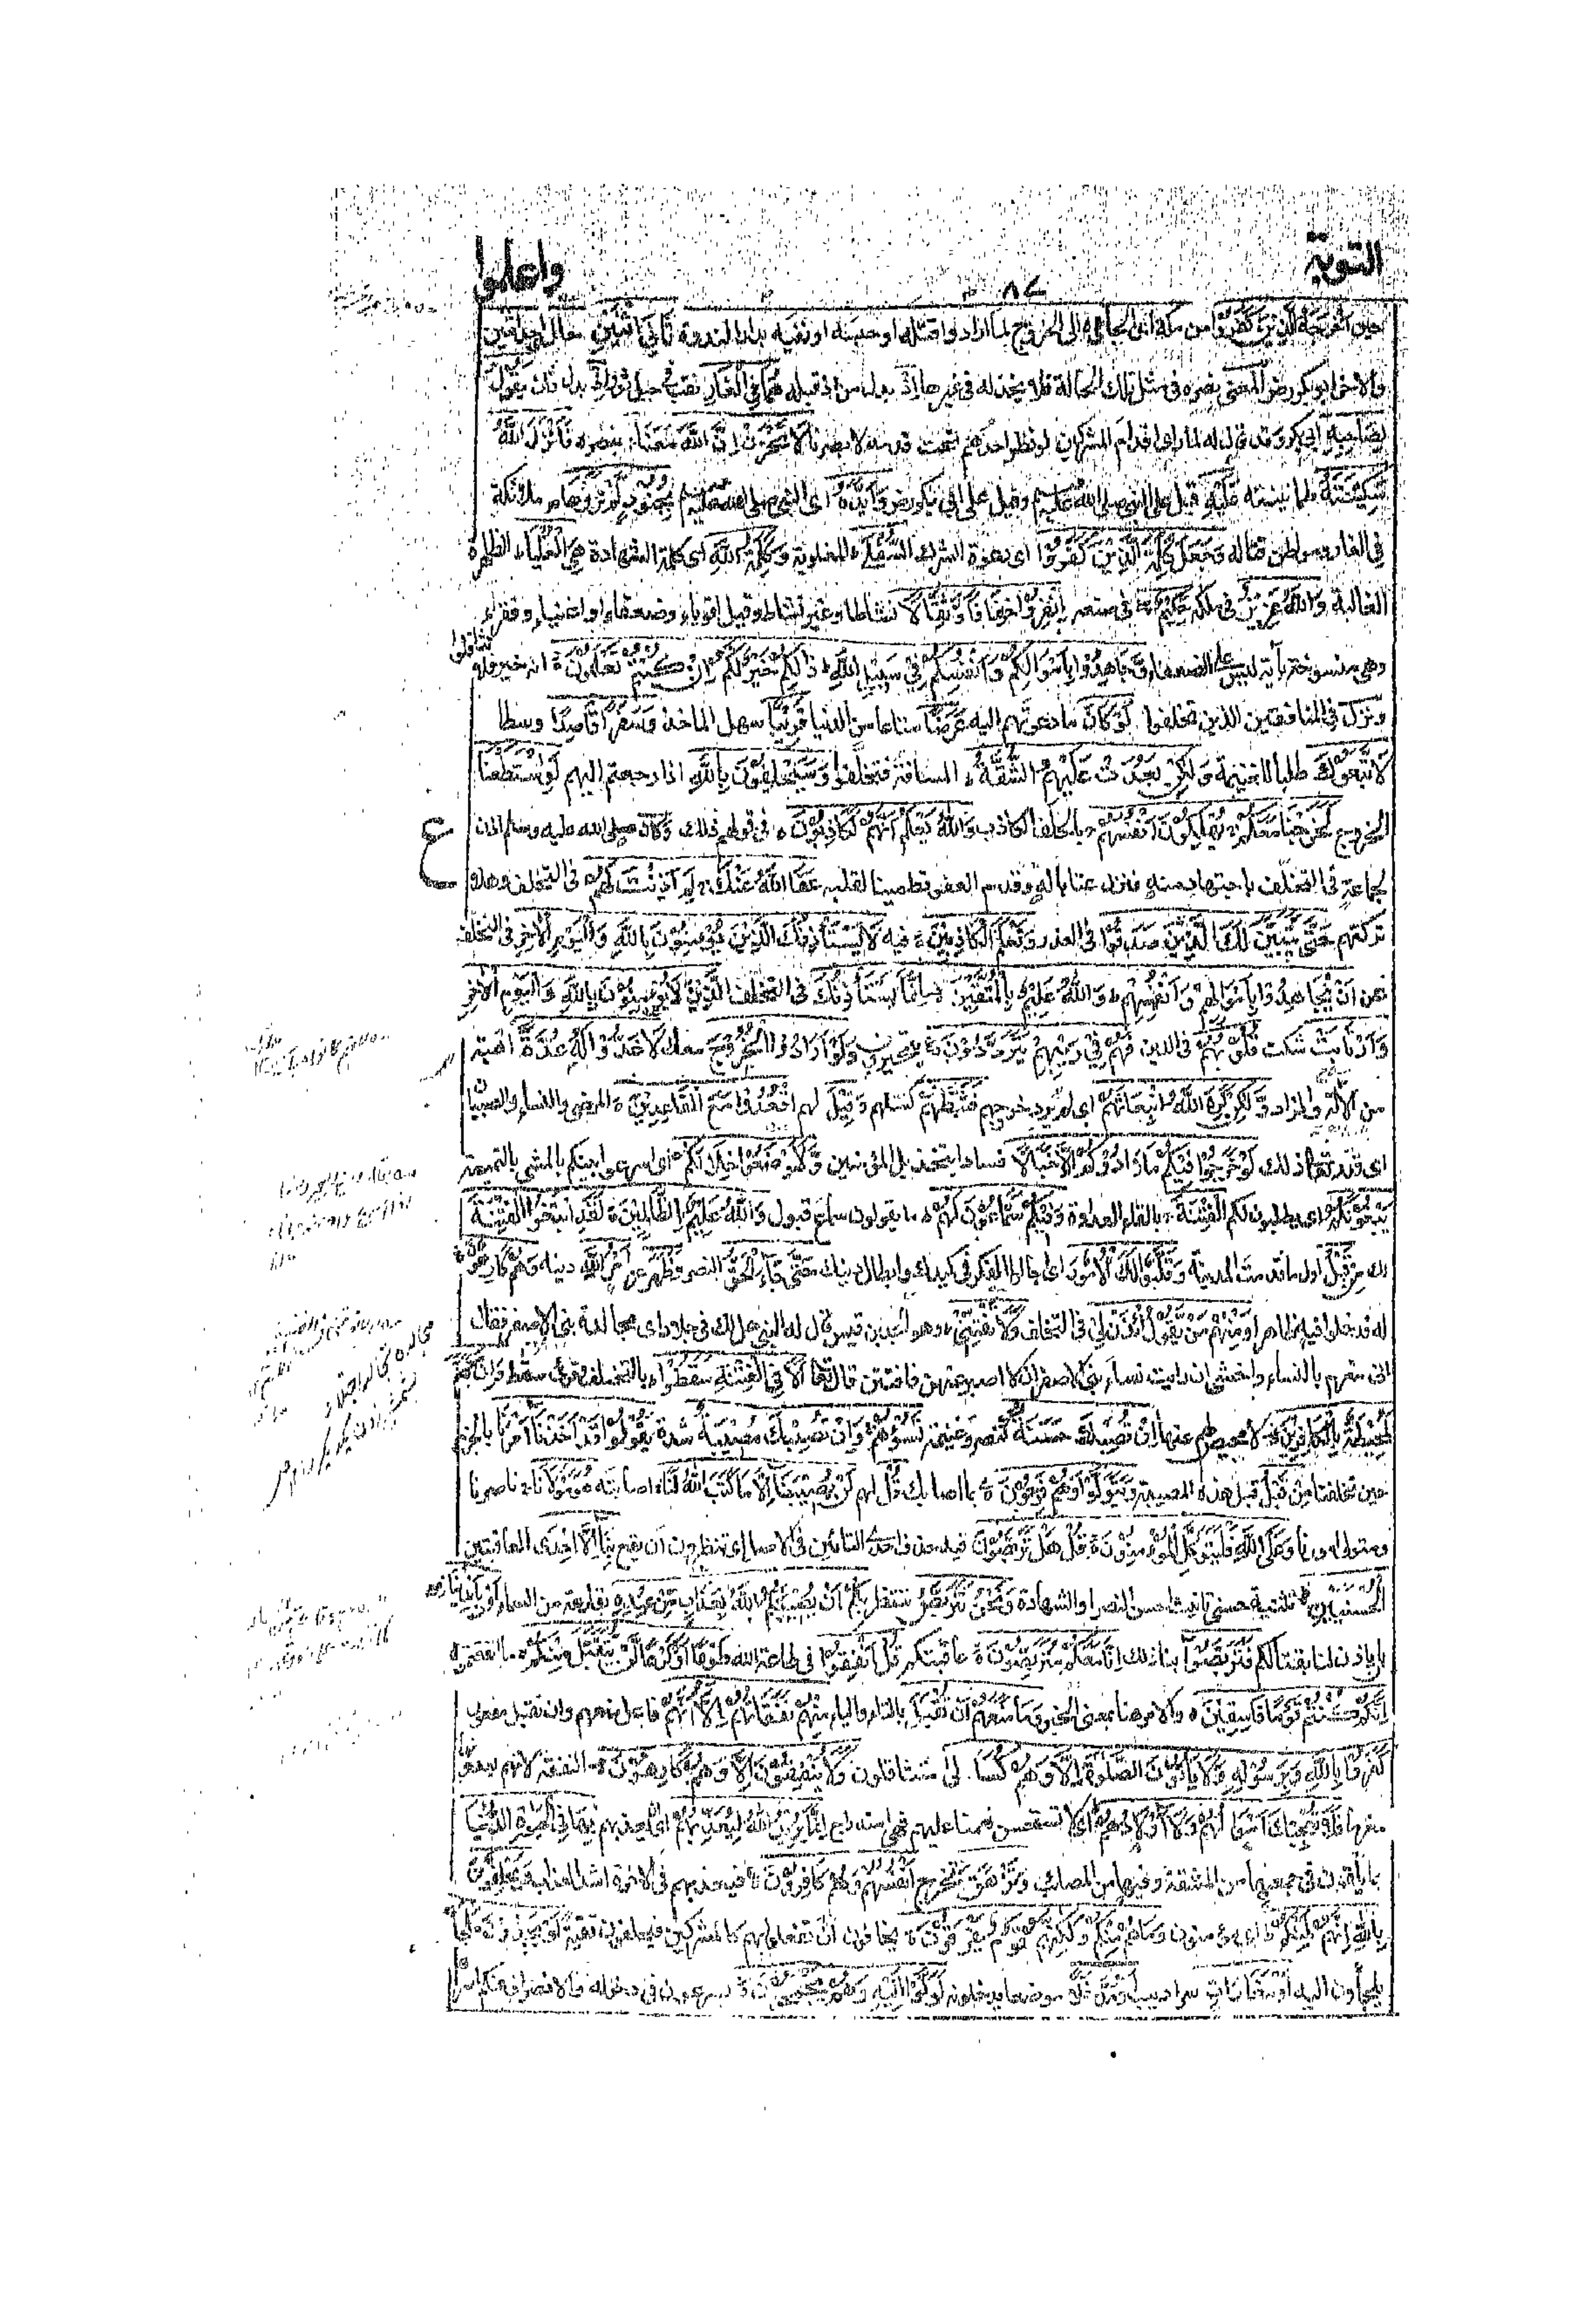 التوبة
٨٧
واعلموا
حين اَخْرَجَهُ الَّذِيْنَ كَفَرُوْا من مكة اى الجاؤه الى الخروج لما ارادوا قتله او حبسه او نفيه بدار الندوة ثَانِيَ اثْنَيْنِ حال اى احد اثنين
والاخر ابو بكر رض المعنى نصره فى مثل تلك الحالة فلا يخذله فى غيرها اِذْ بدل من اذ قبله هُمَا فِي الْغَارِ نقب فى جبل ثور اِذْ بدل ثان يَقُوْلُ
لِصَاحِبِهٖ ابى بكر وقد قال له لما راى اقدام المشركين لو نظر احدهم تحت قدميه لابصرنا لَا تَحْزَنْ اِنَّ اللّٰهَ مَعَنَا بنصره فَاَنْزَلَ اللّٰهُ
سَكِيْنَتَهٗ طمانينته عَلَيْهِ قيل على النبى صلى الله عليه وسلم وقيل على ابى بكر رض وَاَيَّدَهٗ اى النبى صلى الله عليه وسلم بِجُنُوْدٍ لَّمْ تَرَوْهَا ملائكة
فى الغار ومواطن قتاله وَجَعَلَ كَلِمَةَ الَّذِيْنَ كَفَرُوْا اى دعوة الشرك السُّفْلٰى المغلوبة وَكَلِمَةُ اللّٰهِ اى كلمة الشهادة هِيَ الْعُلْيَا الظاهرة
الغالبة وَاللّٰهُ عَزِيْزٌ فى ملكه حَكِيْمٌ فى صنعه اِنْفِرُوْا خِفَافًا وَّثِقَالًا نشاطا وغير نشاط وقيل اقوياء وضعفاء او اغنياء وفقراء
وهى منسوخة بآية ليس على الضعفاء وَّجَاهِدُوْا بِاَمْوَالِكُمْ وَاَنْفُسِكُمْ فِيْ سَبِيْلِ اللّٰهِ ذٰلِكُمْ خَيْرٌ لَّكُمْ اِنْ كُنْتُمْ تَعْلَمُوْنَ انه خير فلا تثاقلوا
ونزل فى المنافقين الذين تخلفوا لَوْ كَانَ ما دعوتهم اليه عَرَضًا متاعا من الدنيا قَرِيْبًا سهل الماخذ وَسَفَرًا قَاصِدًا وسطا
لَّاتَّبَعُوْكَ طلبا للغنيمة وَلٰكِنْ بَعُدَتْ عَلَيْهِمُ الشُّقَّةُ المسافة فتخلفوا وَسَيَحْلِفُوْنَ بِاللّٰهِ اذا رجعتم اليهم لَوِ اسْتَطَعْنَا
الخروج لَخَرَجْنَا مَعَكُمْ يُهْلِكُوْنَ اَنْفُسَهُمْ بالحلف الكاذب وَاللّٰهُ يَعْلَمُ اِنَّهُمْ لَكَاذِبُوْنَ فى قولهم ذلك وكان صلى الله عليه وسلم اذن
ع
لجماعة فى التخلف باجتهاد منه فنزل عتابا له وقدم العفو تطمينا لقلبه عَفَا اللّٰهُ عَنْكَ لِمَ اَذِنْتَ لَهُمْ فى التخلف وهلا
تركتهم حَتّٰى يَتَبَيَّنَ لَكَ الَّذِيْنَ صَدَقُوْا فى العذر وَتَعْلَمَ الْكَاذِبِيْنَ فيه لَا يَسْتَأْذِنُكَ الَّذِيْنَ يُؤْمِنُوْنَ بِاللّٰهِ وَالْيَوْمِ الْاٰخِرِ فى التخلف
عن اَنْ يُّجَاهِدُوْا بِاَمْوَالِهِمْ وَاَنْفُسِهِمْ وَاللّٰهُ عَلِيْمٌ بِالْمُتَّقِيْنَ اِنَّمَا يَسْتَأْذِنُكَ فى التخلف الَّذِيْنَ لَا يُؤْمِنُوْنَ بِاللّٰهِ وَالْيَوْمِ الْاٰخِرِ
وَارْتَابَتْ شكت قُلُوْبُهُمْ فى الدين فَهُمْ فِيْ رَيْبِهِمْ يَتَرَدَّدُوْنَ يتحيرون وَلَوْ اَرَادُوا الْخُرُوْجَ معك لَاَعَدُّوْا لَهٗ عُدَّةً اهبة
من الآلة والزاد وَّلٰكِنْ كَرِهَ اللّٰهُ انْبِعَاثَهُمْ اى لم يرد خروجهم فَثَبَّطَهُمْ كسلهم وَقِيْلَ لهم اقْعُدُوْا مَعَ الْقَاعِدِيْنَ المرضى والنساء والصبيان
اى قدر تعالى ذلك لَوْ خَرَجُوْا فِيْكُمْ مَّا زَادُوْكُمْ اِلَّا خَبَالًا فسادا بتخذيل المؤمنين وَّلَاَوْضَعُوْا خِلَالَكُمْ اى اسرعوا بينكم بالمشى بالنميمة
يَبْغُوْنَكُمُ اى يطلبون لكم الْفِتْنَةَ بالقاء العداوة وَفِيْكُمْ سَمَّاعُوْنَ لَهُمْ ما يقولون سماع قبول وَاللّٰهُ عَلِيْمٌ بِالظَّالِمِيْنَ لَقَدِ ابْتَغَوُا الْفِتْنَةَ
لك مِنْ قَبْلُ اول ما قدمت المدينة وَقَلَّبُوْا لَكَ الْاُمُوْرَ اى اجالوا الفكر فى كيدك وابطال دينك حَتّٰى جَاءَ الْحَقُّ النصر وَظَهَرَ عز اَمْرُ اللّٰهِ دينه وَهُمْ كَارِهُوْنَ
له فدخلوا فيه ظاهرا وَمِنْهُمْ مَّنْ يَّقُوْلُ ائْذَنْ لِّيْ فى التخلف وَلَا تَفْتِنِّيْ وهو الجد بن قيس قال له النبى هل لك فى جلاد اى مجالدة بنى الاصفر فقال
انى مغرم بالنساء واخشى ان رايت نساء بنى الاصفر ان لا اصبر عنهن فافتتن قال تعالى اَلَا فِي الْفِتْنَةِ سَقَطُوْا بالتخلف وقرئ سقط وَاِنَّ جَهَنَّمَ
لَمُحِيْطَةٌ بِالْكَافِرِيْنَ لا محيص لهم عنها اِنْ تُصِبْكَ حَسَنَةٌ كنصر وغنيمة تَسُؤْهُمْ وَاِنْ تُصِبْكَ مُصِيْبَةٌ شدة يَّقُوْلُوْا قَدْ اَخَذْنَا اَمْرَنَا بالحزم
حين تخلفنا مِنْ قَبْلُ قبل هذه المصيبة وَيَتَوَلَّوْا وَهُمْ فَرِحُوْنَ بما اصابك قُلْ لهم لَّنْ يُّصِيْبَنَا اِلَّا مَا كَتَبَ اللّٰهُ لَنَا اصابته هُوَ مَوْلَانَا ناصرنا
ومتولى امورنا وَعَلَى اللّٰهِ فَلْيَتَوَكَّلِ الْمُؤْمِنُوْنَ قُلْ هَلْ تَرَبَّصُوْنَ فيه حذف احدى التائين فى الاصل اى تنتظرون ان يقع بِنَا اِلَّا اِحْدَى العاقبتين
الْحُسْنَيَيْنِ تثنية حسنى تانيث احسن النصر او الشهادة وَنَحْنُ نَتَرَبَّصُ ننتظر بِكُمْ اَنْ يُّصِيْبَكُمُ اللّٰهُ بِعَذَابٍ مِّنْ عِنْدِهٖ بقارعة من السماء اَوْ بِاَيْدِيْنَا
بان ياذن لنا بقتالكم فَتَرَبَّصُوْا بنا ذلك اِنَّا مَعَكُمْ مُّتَرَبِّصُوْنَ عاقبتكم قُلْ اَنْفِقُوْا فى طاعة الله طَوْعًا اَوْ كَرْهًا لَّنْ يُّتَقَبَّلَ مِنْكُمْ ما انفقتموه
اِنَّكُمْ كُنْتُمْ قَوْمًا فَاسِقِيْنَ والامر هنا بمعنى الخبر وَمَا مَنَعَهُمْ اَنْ تُقْبَلَ بالتاء والياء مِنْهُمْ نَفَقَاتُهُمْ اِلَّا اَنَّهُمْ فاعل منعهم وان تقبل مفعول
كَفَرُوْا بِاللّٰهِ وَبِرَسُوْلِهٖ وَلَا يَأْتُوْنَ الصَّلٰوةَ اِلَّا وَهُمْ كُسَالٰى متثاقلون وَلَا يُنْفِقُوْنَ اِلَّا وَهُمْ كَارِهُوْنَ النفقة لانهم يعدونها
مغرما فَلَا تُعْجِبْكَ اَمْوَالُهُمْ وَلَا اَوْلَادُهُمْ اى لا تستحسن نعمنا عليهم فهى استدراج اِنَّمَا يُرِيْدُ اللّٰهُ لِيُعَذِّبَهُمْ اى ان يعذبهم بِهَا فِي الْحَيٰوةِ الدُّنْيَا
بما يلقون فى جمعها من المشقة وفيها من المصائب وَتَزْهَقَ تخرج اَنْفُسُهُمْ وَهُمْ كَافِرُوْنَ فيعذبهم فى الآخرة اشد العذاب وَيَحْلِفُوْنَ
بِاللّٰهِ اِنَّهُمْ لَمِنْكُمْ اى مؤمنون وَمَا هُمْ مِّنْكُمْ وَلٰكِنَّهُمْ قَوْمٌ يَّفْرَقُوْنَ يخافون ان تفعلوا بهم كالمشركين فيحلفون تقية لَوْ يَجِدُوْنَ مَلْجَأً
يلجأون اليه اَوْ مَغَارَاتٍ سراديب اَوْ مُدَّخَلًا موضعا يدخلونه لَّوَلَّوْا اِلَيْهِ وَهُمْ يَجْمَحُوْنَ يسرعون فى دخوله والانصراف عنكم اسراعا